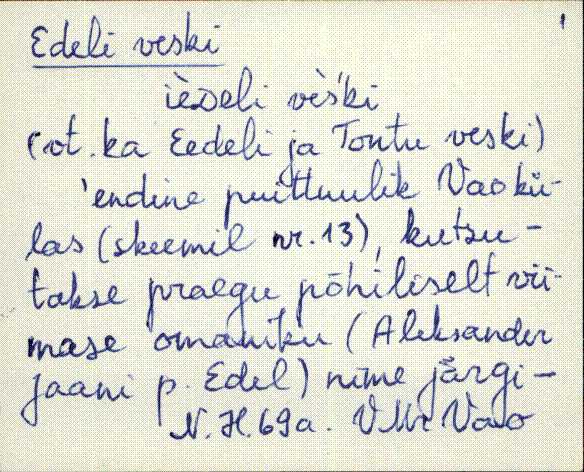 1
Edeli veski
ièᴅeli vèś̀ki
(vt. ka Eedeli ja Tontu veski)
'endine puittuulik Vao kü-
las (skeemil nr. 13), kutsu-
takse praegu põhiliselt vii-
mase omaniku (Aleksander
Jaani p. Edel) nime järgi-
N. H. 69a. VMr Vao